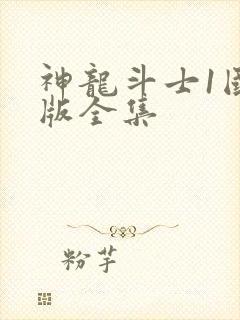 神龍斗士1
版全集
粉芋